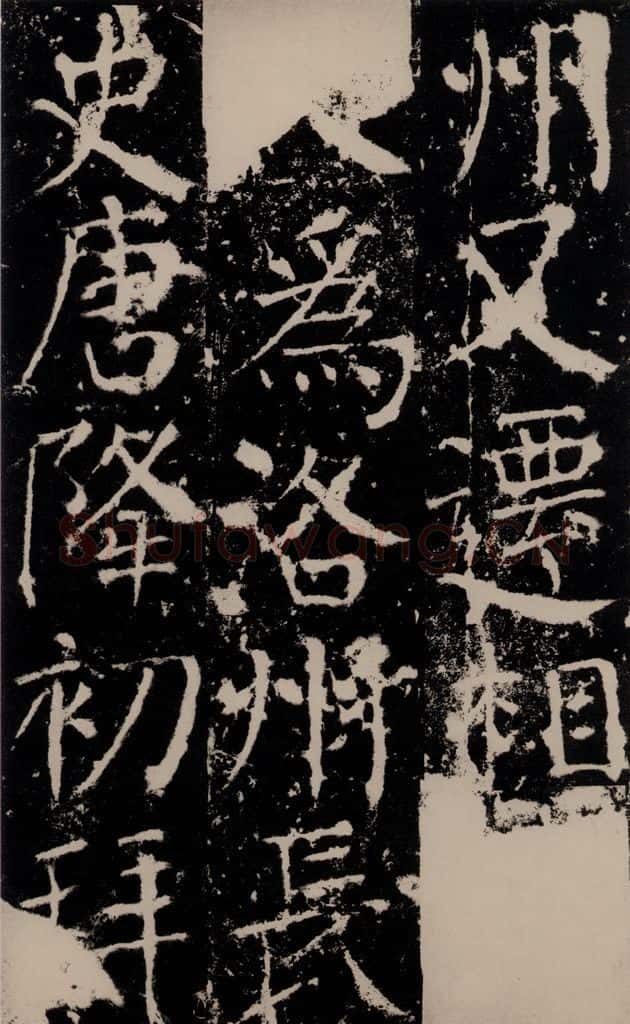 州又遷相
為洛州長
史唐隆初拜
Shufawang.CN